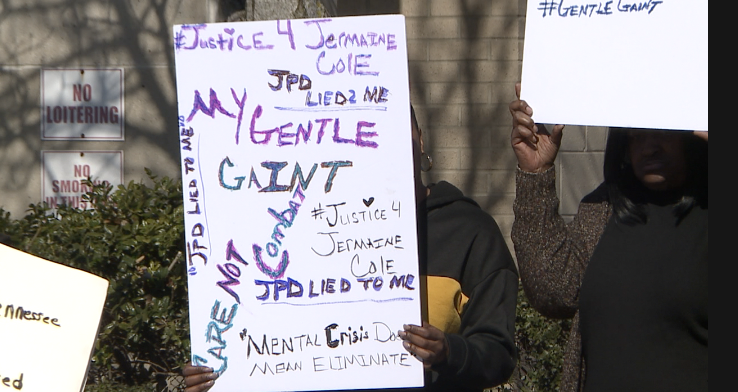 #Justice 4 Jermaine
Cole
JPD
LIED2 ME
MY
GENTLE
GAINT
"JPD LIED TO ME"
#Justice 4
Jermaine
Cole
JPD LIED TO ME
CARE NOT
Combat
"MENTAL Crisis Doe
MEAN ELIMINATE"
#GENTLEGAINT
NO
LOITERING
NO
SMOK
IN THIS
nnessee
ed